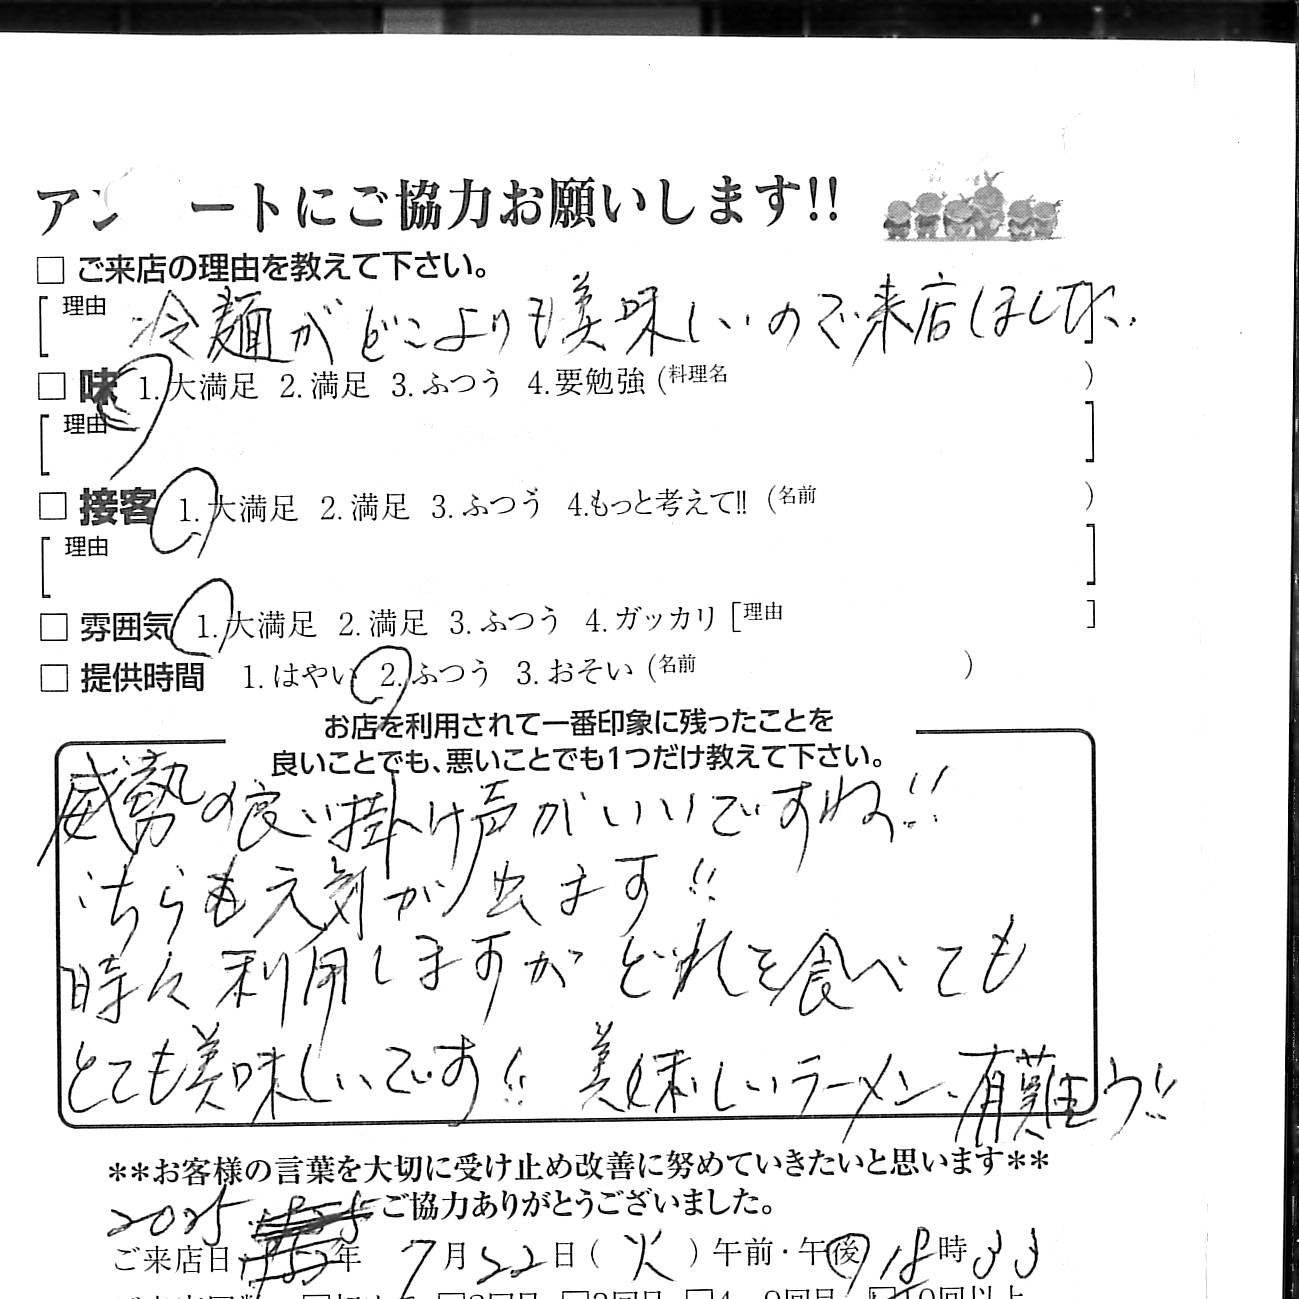 アンートにご協力お願いします!!
□ ご来店の理由を教えて下さい。
理由 冷麺がどこよりも美味しいので来店しました。
□ 味 1.大満足 2.満足 3.ふつう 4.要勉強 (料理名 )
[理由 ]
□ 接客 1.大満足 2.満足 3.ふつう 4.もっと考えて!! (名前 )
[理由 ]
□ 雰囲気 1.大満足 2.満足 3.ふつう 4.ガッカリ [理由 ]
□ 提供時間 1.はやい 2.ふつう 3.おそい (名前 )
お店を利用されて一番印象に残ったことを
良いことでも、悪いことでも1つだけ教えて下さい。
威勢の良い掛け声がいいですね!!
こちらも元気が出ます!!
時々利用しますがどれを食べても
とても美味しいです!! 美味しいラーメン、有難う!!
**お客様の言葉を大切に受け止め改善に努めていきたいと思います**
2025 ご協力ありがとうございました。
ご来店日 年 7月22日(火)午前・午後 18時33